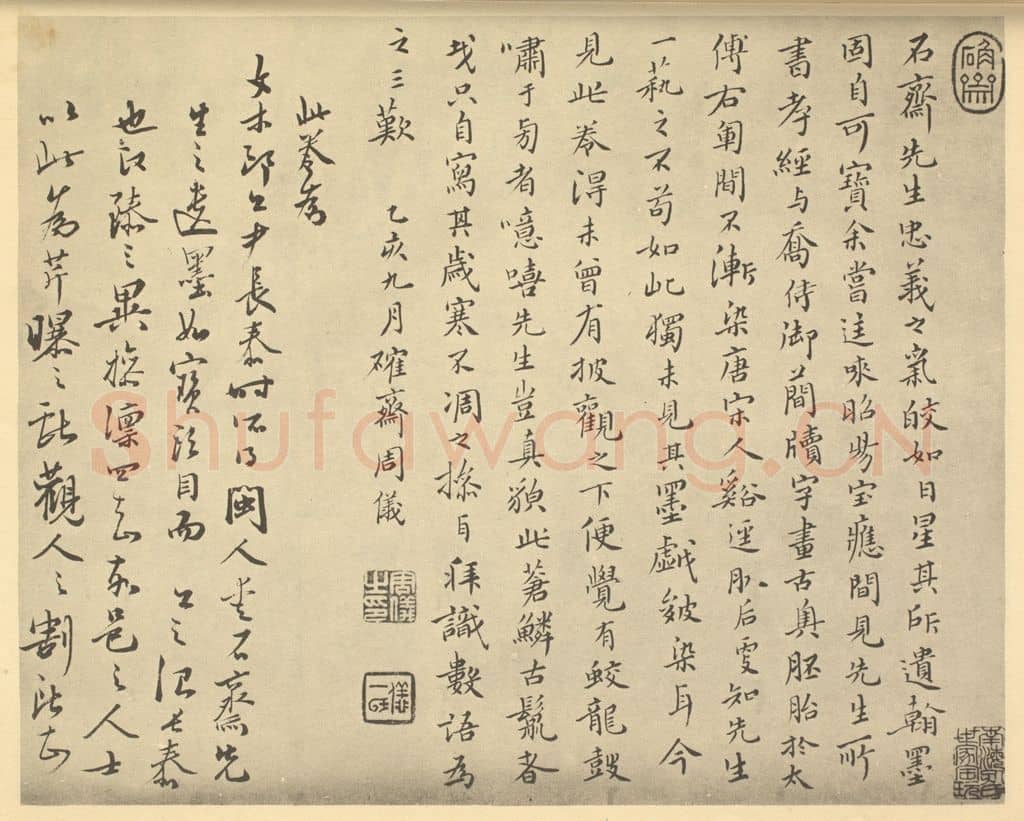 石齋先生忠義之氣皎如日星其所遺翰墨
固自可寶余嘗往來昭陽宝應間見先生所
書孝經与喬侍御蕳牘字畫古奧胚胎於太
傅右軍間不漸染唐宋人谿逕
知先生
一蓺之不苟如此獨未見其墨戱皴染耳今
見此卷得未曾有披觀之下便覺有蛟龍鼓
嘯于旁者噫嘻先生豈真藉此蒼鱗古鬛者
㦲只自寫其歲寒不凋之操耳拜識數語為
之三歎 乙亥九月確齋周儀
周儀之印
此卷為
長泰時所得閩人重石齋先
生之遺墨如寶頭目而 公之涖長泰
也
之異操凛四知 邑之人士
以此為芹曝之獻觀人之割
Shufawang.CN